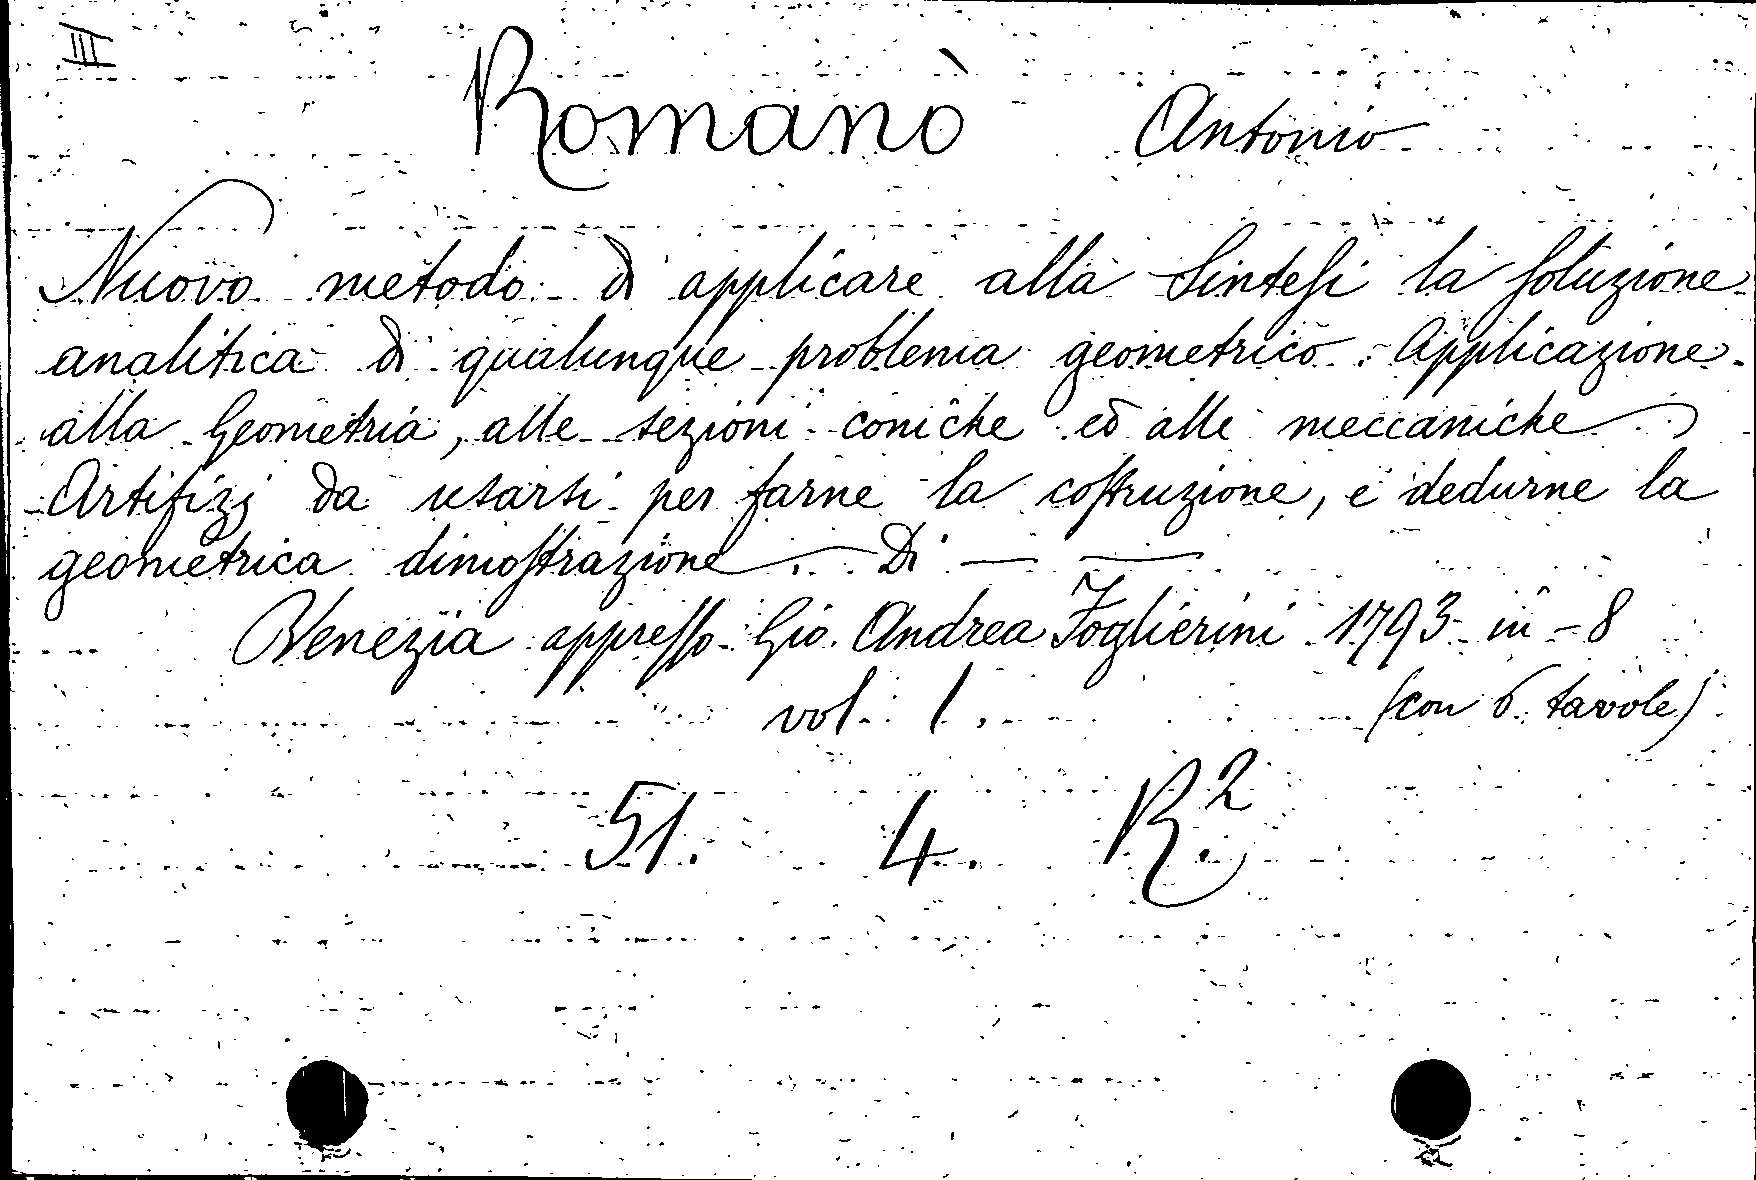 III
Romanò Antonio
Nuovo metodo di applicare alla Sinteſi la ſoluzione
analitica di qualunque problema geometrico. Applicazione
alla Geometria, alle sezioni coniche ed alle meccaniche
Artifizj da usarsi per farne la coſtruzione, e dedurne la
geometrica dimoſtrazione — Di — —
Venezia appreſſo Gio. Andrea Foglierini 1793 in-8
vol. 1. (con 6 tavole)
51. 4. R.²